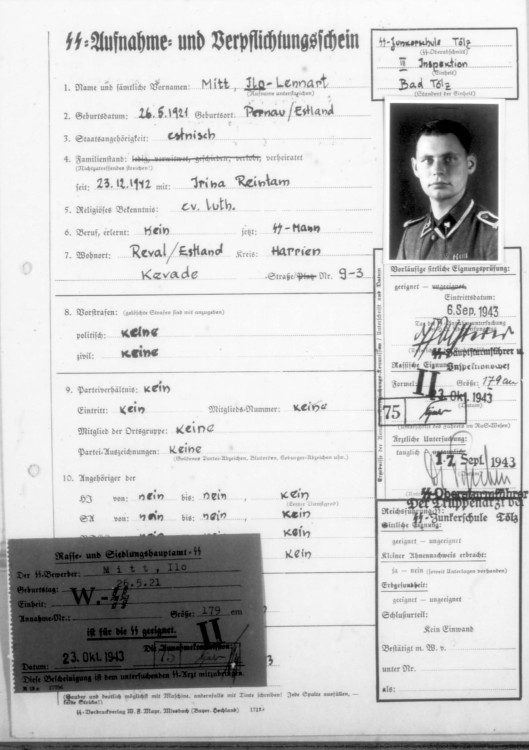 SS-Aufnahme- und Verpflichtungsschein
SS-Junkerschule Tölz
(SS-Oberabschnitt)
III Inspektion
(Einheit)
Bad Tölz
(Standort der Einheit)
1. Name und sämtliche Vornamen: Mitt, Ilo-Lennart
(Rufname unterstreichen)
2. Geburtsdatum: 26.5.1921 Geburtsort: Pernau/Estland
3. Staatsangehörigkeit: estnisch
4. Familienstand: ledig, verwitwet, geschieden, verlobt, verheiratet
(Nichtzutreffendes streichen!)
seit: 23.12.1942 mit: Irina Reintam
5. Religiöses Bekenntnis: ev. luth.
6. Beruf, erlernt: Kein jetzt: SS-Mann
7. Wohnort: Reval/Estland Kreis: Harrien
Kevade Straße/Platz Nr. 9-3
8. Vorstrafen: (politische Strafen sind mit anzugeben)
politisch: Keine
zivil: Keine
9. Parteiverhältnis: Kein
Eintritt: Kein Mitglieds-Nummer: Keine
Mitglied der Ortsgruppe: Keine
Partei-Auszeichnungen: Keine
10. Angehöriger der
HJ von: nein bis: nein, Kein
(Letzter Dienstgrad)
SA von: nein bis: nein, Kein
nein nein Kein
Kein
Vorläufige sittliche Eignungsprüfung:
geeignet – ungeeignet
Eintrittsdatum:
6. Sep. 1943
SS-Hauptsturmführer u.
Rassische Eignung
Inspektionschef
Formel: II Größe: 179 cm
23. Okt. 1943
(Datum)
75
Ärztliche Untersuchung:
tauglich – untauglich
17. Sept. 1943
SS-Obersturmführer
Der Truppenarzt der
SS-Junkerschule Tölz
Reichsführer-SS
Sittliche Eignung:
geeignet – ungeeignet
Kleiner Ahnennachweis erbracht:
ja – nein (soweit Unterlagen vorhanden)
Erbgesundheit:
geeignet – ungeeignet
Schlußurteil:
Kein Einwand
Bestätigt m. W. v.
unter Nr.
als:
Rasse- und Siedlungshauptamt-SS
Der SS-Bewerber: Mitt, Ilo
Geburtstag: 26.5.21
Einheit: W.-SS
Annahme-Nr.: Größe: 179 cm
ist für die SS geeignet. II
Datum: 23. Okt. 1943
75
Diese Bescheinigung ist dem untersuchenden SS-Arzt mitzubringen.
SS-Vordruckverlag W. F. Mayr, Miesbach (Bayer. Hochland)